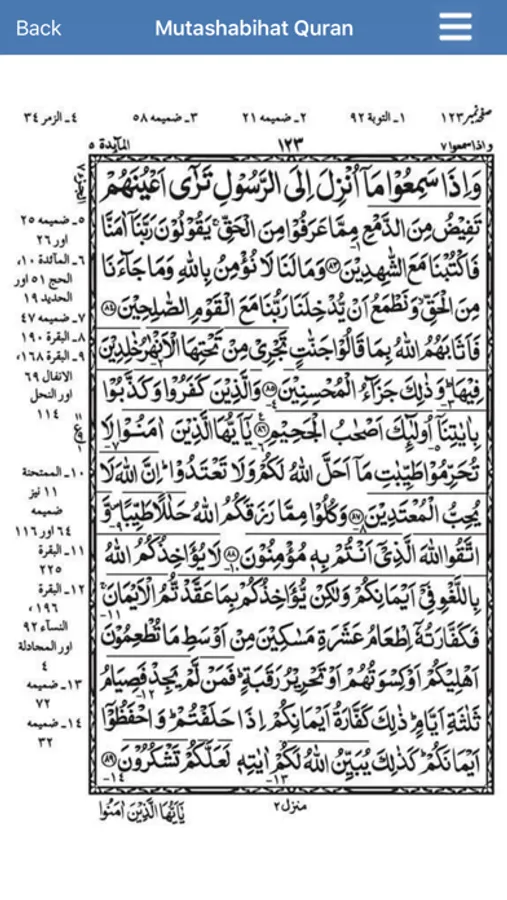 Back
Mutashabihat Quran
صفحہ نمبر ۱۲۳ ۱۔ التوبة ۹۲ ۲۔ ضمیمہ ۲۱ ۳۔ ضمیمہ ۵۸ ۴۔ الزمر ۳۴
واذاسمعوا ۷ ۱۲۳ المآىٕدة ۵
وَاِذَا سَمِعُوْا مَاۤ اُنْزِلَ اِلَى الرَّسُوْلِ تَرٰۤى اَعْيُنَهُمْ
تَفِيْضُ مِنَ الدَّمْعِ مِمَّا عَرَفُوْا مِنَ الْحَقِّ ۚ يَقُوْلُوْنَ رَبَّنَاۤ اٰمَنَّا
فَاكْتُبْنَا مَعَ الشّٰهِدِيْنَ ۸۳ وَمَا لَنَا لَا نُؤْمِنُ بِاللّٰهِ وَمَا جَآءَنَا
مِنَ الْحَقِّ ۙ وَنَطْمَعُ اَنْ يُّدْخِلَنَا رَبُّنَا مَعَ الْقَوْمِ الصّٰلِحِيْنَ ۸۴
فَاَثَابَهُمُ اللّٰهُ بِمَا قَالُوْا جَنّٰتٍ تَجْرِيْ مِنْ تَحْتِهَا الْاَنْهٰرُ خٰلِدِيْنَ
فِيْهَا ؕ وَذٰلِكَ جَزَآءُ الْمُحْسِنِيْنَ ۸۵ وَالَّذِيْنَ كَفَرُوْا وَكَذَّبُوْا
بِاٰيٰتِنَاۤ اُولٰٓئِكَ اَصْحٰبُ الْجَحِيْمِ ۸۶ يٰۤاَيُّهَا الَّذِيْنَ اٰمَنُوْا لَا
تُحَرِّمُوْا طَيِّبٰتِ مَاۤ اَحَلَّ اللّٰهُ لَكُمْ وَلَا تَعْتَدُوْا ؕ اِنَّ اللّٰهَ لَا
يُحِبُّ الْمُعْتَدِيْنَ ۸۷ وَكُلُوْا مِمَّا رَزَقَكُمُ اللّٰهُ حَلٰلًا طَيِّبًا ۪ وَّ
اتَّقُوا اللّٰهَ الَّذِيْۤ اَنْتُمْ بِهٖ مُؤْمِنُوْنَ ۸۸ لَا يُؤَاخِذُكُمُ اللّٰهُ
بِاللَّغْوِ فِيْۤ اَيْمَانِكُمْ وَلٰكِنْ يُّؤَاخِذُكُمْ بِمَا عَقَّدْتُّمُ الْاَيْمَانَ ۚ
فَكَفَّارَتُهٗۤ اِطْعَامُ عَشَرَةِ مَسٰكِيْنَ مِنْ اَوْسَطِ مَا تُطْعِمُوْنَ
اَهْلِيْكُمْ اَوْ كِسْوَتُهُمْ اَوْ تَحْرِيْرُ رَقَبَةٍ ؕ فَمَنْ لَّمْ يَجِدْ فَصِيَامُ
ثَلٰثَةِ اَيَّامٍ ؕ ذٰلِكَ كَفَّارَةُ اَيْمَانِكُمْ اِذَا حَلَفْتُمْ ؕ وَاحْفَظُوْۤا
اَيْمَانَكُمْ ؕ كَذٰلِكَ يُبَيِّنُ اللّٰهُ لَكُمْ اٰيٰتِهٖ لَعَلَّكُمْ تَشْكُرُوْنَ ۸۹
منزل ۲
يٰۤاَيُّهَا الَّذِيْنَ اٰمَنُوْا
۵۔ ضمیمہ ۲۵
اور ۲۶
۶۔ المائدة ۱۰،
الحج ۵۱ اور
الحدید ۱۹
۷۔ ضمیمہ ۴۷
۸۔ البقرة ۱۹۰
۹۔ البقرة ۱۶۸،
الانفال ۶۹
اور النحل
۱۱۴
۱۰۔ الممتحنة
۱۱ نیز
ضمیمہ
۶۴ اور ۱۱۶
۱۱۔ البقرة
۲۲۵
۱۲۔ البقرة
۱۹۶،
النسآء ۹۲
اور المجادلة
۴
۱۳۔ ضمیمہ
۷۲
۱۴۔ ضمیمہ
۳۲